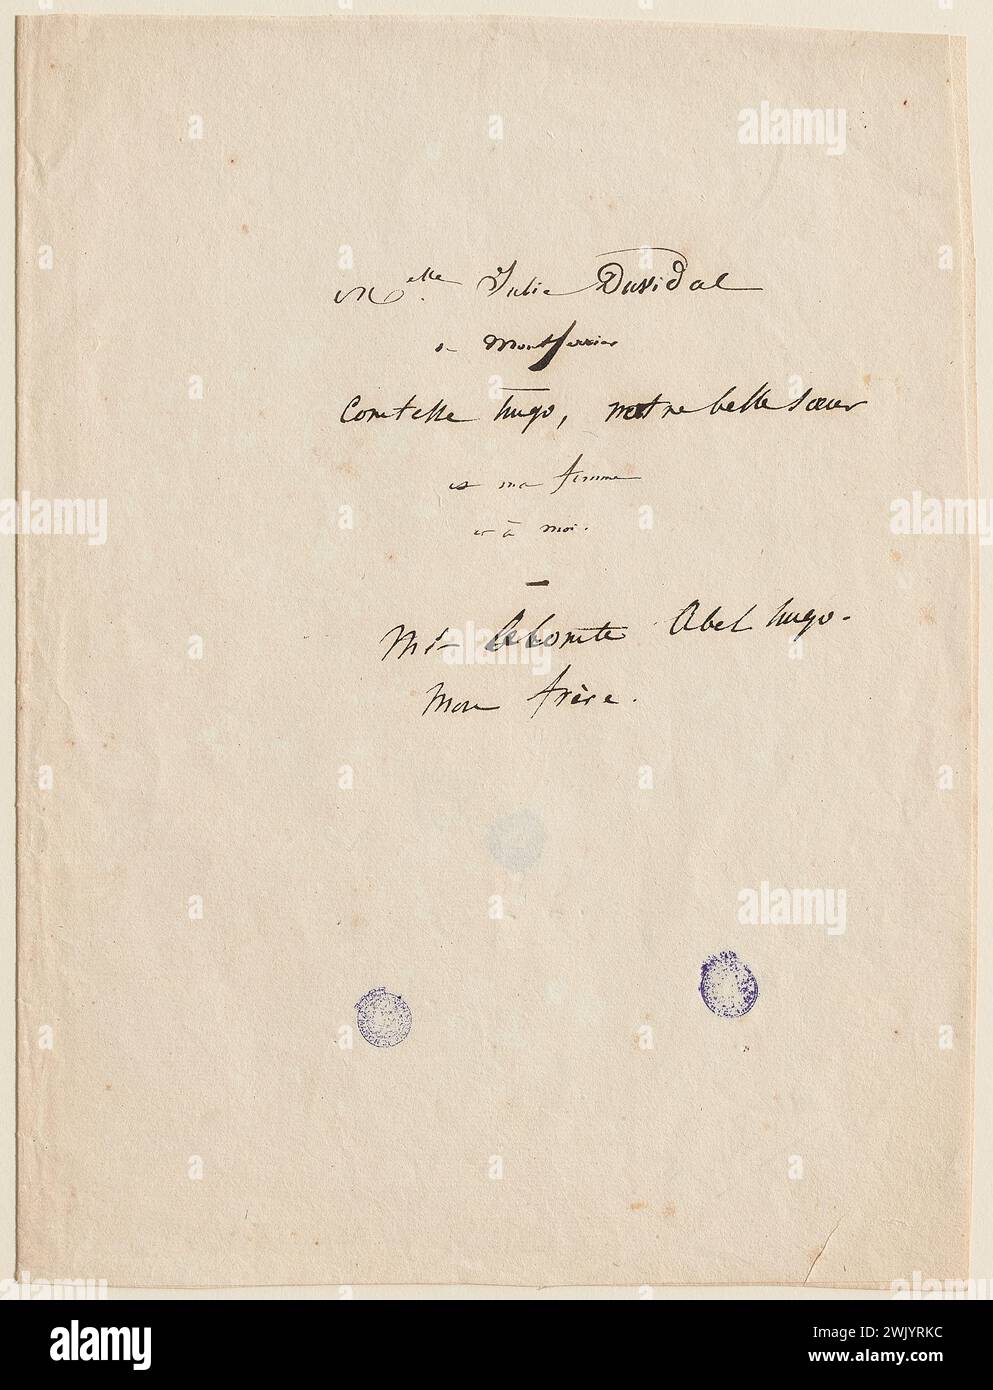 Melle. Julie Duvidal
de Montferrier
Comtesse hugo, notre belle sœur
à ma femme
et à moi.
—
Mr le Comte Abel hugo.
Mon frère.
alamy
Image ID: 2WJYRKC
www.alamy.com